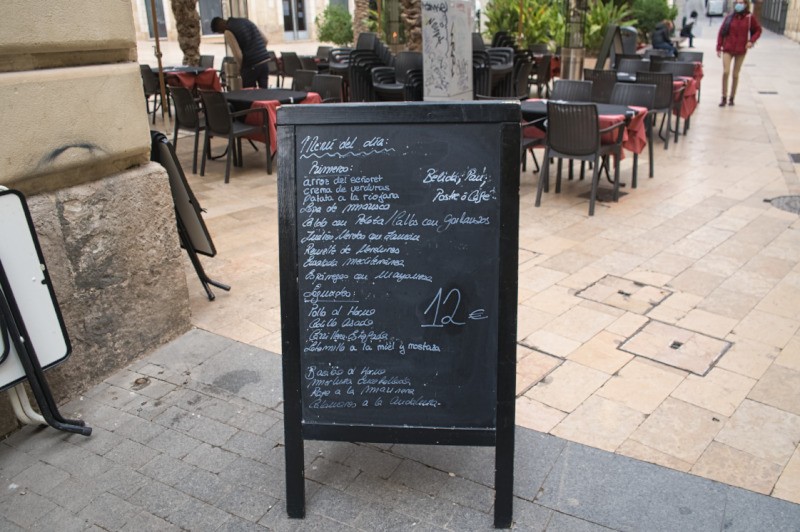 Menú del día:
Primeros:
arroz del señoret
crema de verduras
patata a la riojana
Sopa de marisco
Caldo con Pelota / Callos con garbanzos
Judías Verdes con Jamón
Revuelto de Verduras
Ensalada mediterránea
Espárragos con mayonesa
Bebida, Pan,
Postre ó Café
Segundos:
Pollo al Horno
Codillo Asado
Carrillera Estofada
Solomillo a la miel y mostaza
Bacalao al Horno
Merluza
Rape a la marinera
Calamares a la Andaluza
12 €